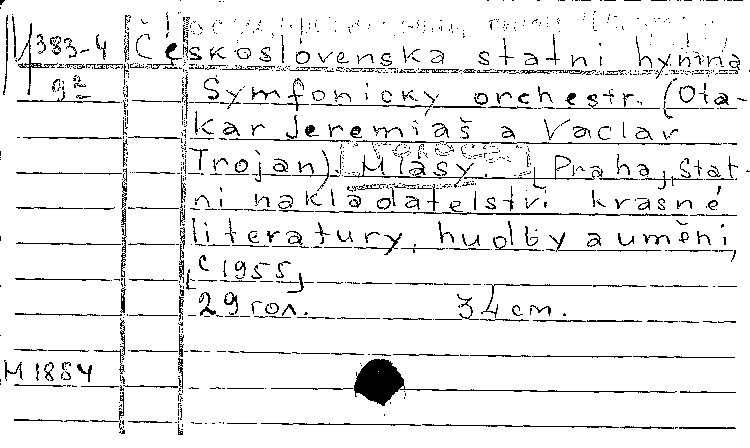 М 383-4 Československa statni hymna.
92 Symfonicky orchestr. (Ota-
kar Jeremiaš a Vaclav
Trojan). Hlasy. [Praha], Stat-
ni nakladatelstvi krasné
literatury, hudby a uměni,
[c 1955]
29 гол. 34 cm.
М 1884